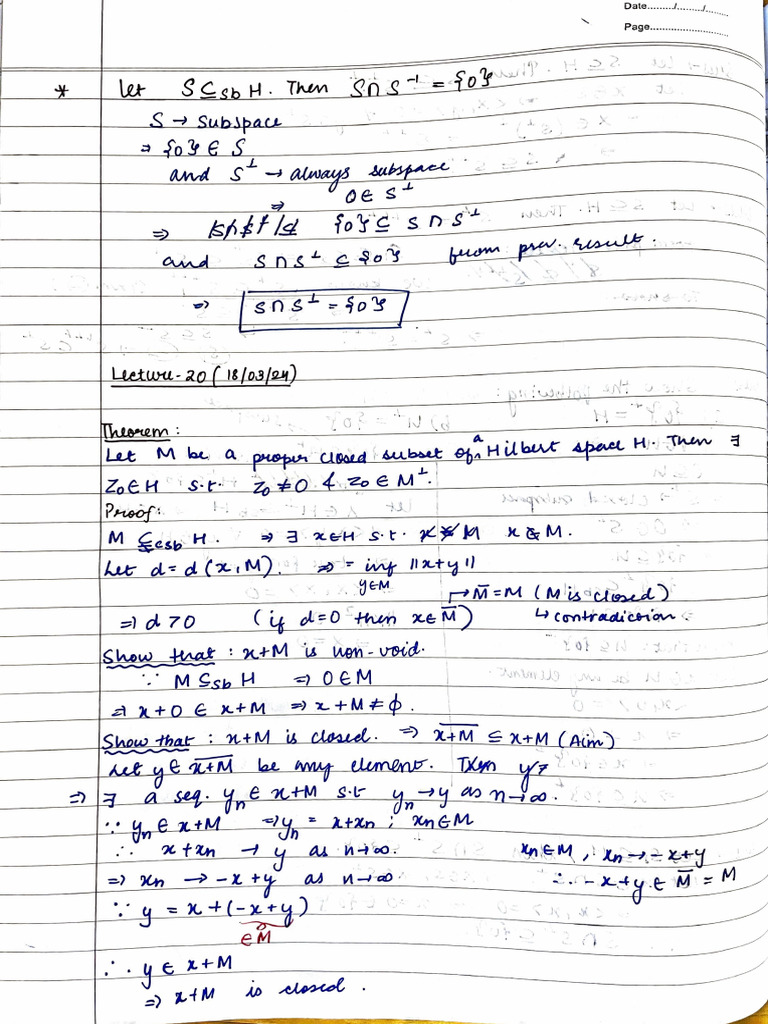 Date......../......../........
Page............................
* Let S ⊆sb H. Then S∩S⊥ = {0}
S → subspace
⇒ {0} ∈ S
and S⊥ → always subspace
⇒ 0 ∈ S⊥
⇒ {0} ⊆ S ∩ S⊥
and S∩S⊥ ⊆ {0} from prev. result.
⇒ S∩S⊥ = {0}
Lecture-20 (18/03/24)
Theorem:
Let M be a proper closed subset of a Hilbert space H. Then ∃
z₀∈H s.t. z₀ ≠ 0 & z₀ ∈ M⊥.
Proof:
M ⊊csb H. ⇒ ∃ x∈H s.t. x ∉ M.
Let d = d(x,M). ⇒ = inf ||x+y||
y∈M
↱ M̄ = M (M is closed)
⇒ d > 0 (if d=0 then x∈M̄) ↳ contradiction.
Show that: x+M is non-void.
∵ M ⊆sb H ⇒ 0∈M
⇒ x+0 ∈ x+M ⇒ x+M ≠ ϕ.
Show that: x+M is closed. ⇒ \overline{x+M} ⊆ x+M (Aim)
Let y ∈ \overline{x+M} be any element. Then y
⇒ ∃ a seq. yn ∈ x+M s.t yn → y as n→∞.
∵ yn ∈ x+M ⇒ yn = x+xn ; xn∈M
∴ x+xn → y as n→∞. xn∈M, xn → -x+y
⇒ xn → -x+y as n→∞ ∴ -x+y ∈ M̄ = M
∵ y = x+(-x+y)
∈M
∴ y ∈ x+M
⇒ x+M is closed.